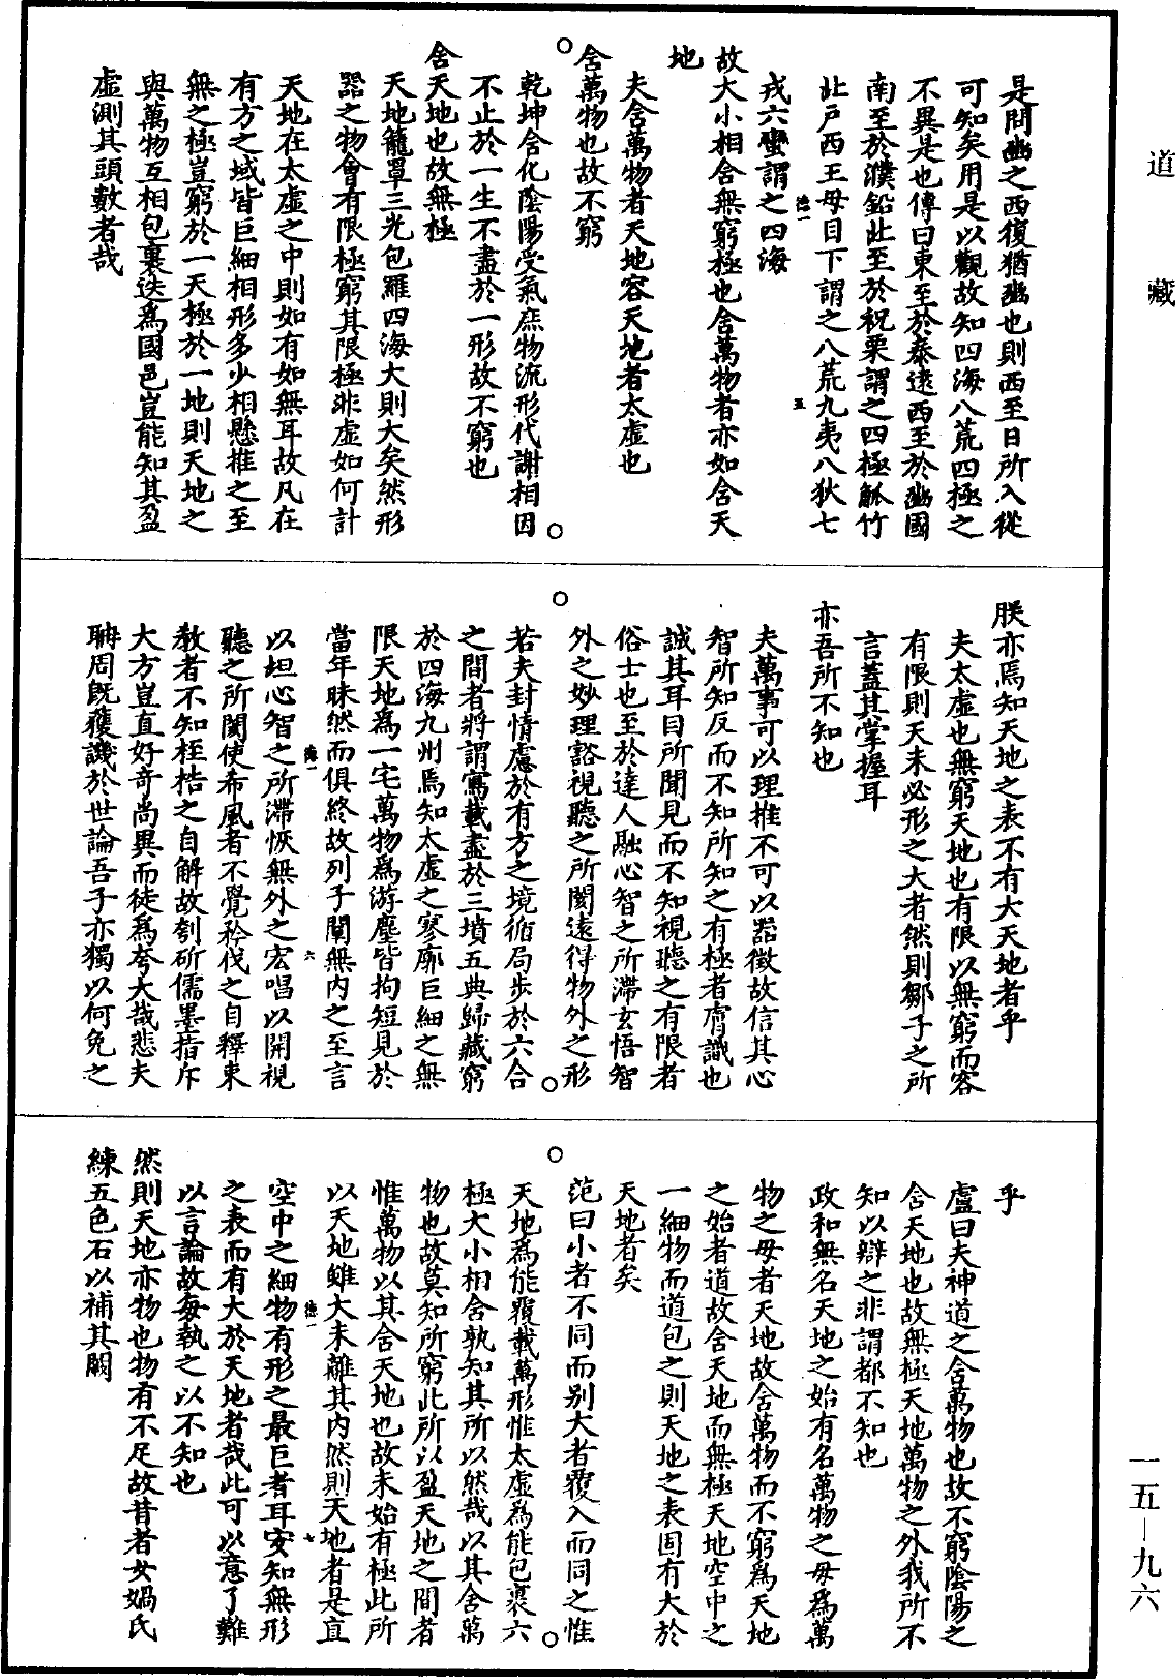 道藏
是問豳之西復猶豳也則西至日所入從
可知矣用是以觀故知四海八荒四極之
不異是也傳曰東至於泰遠西至於豳國
南至於濮鈆北至於祝栗謂之四極觚竹
北戶西王母日下謂之八荒九夷八狄七
戎六蠻謂之四海
故大小相含無窮極也含萬物者亦如含天
地
夫含萬物者天地容天地者太虛也
含萬物也故不窮
乾坤含化陰陽受氣庶物流形代謝相因
不止於一生不盡於一形故不窮也
含天地也故無極
天地籠罩三光包羅四海大則大矣然形
器之物會有限極窮其限極非虛如何計
天地在太虛之中則如有如無耳故凡在
有方之域皆巨細相形多少相懸推之至
無之極豈窮於一天極於一地則天地之
與萬物互相包裹迭為國邑豈能知其盈
虛測其頭數者哉
朕亦焉知天地之表不有大天地者乎
夫太虛也無窮天地也有限以無窮而容
有限則天未必形之大者然則鄒子之所
言蓋其掌握耳
亦吾所不知也
夫萬事可以理推不可以器徵故信其心
智所知反而不知所知之有極者膚識也
誠其耳目所聞見而不知視聽之有限者
俗士也至於達人融心智之所滯玄悟智
外之妙理豁視聽之所閡遠得物外之形
若夫封情慮於有方之境循局步於六合
之間者將謂寫載盡於三墳五典歸藏窮
於四海九州焉知太虛之寥廓巨細之無
限天地為一宅萬物為游塵皆拘短見於
當年昧然而俱終故列子闡無內之至言
以坦心智之所滯恢無外之宏唱以開視
聽之所閡使希風者不覺矜伐之自釋束
教者不知桎梏之自解故刳斫儒墨指斥
大方豈直好奇尚異而徒為夸大哉悲夫
聃周既獲譏於世論吾子亦獨以何免之
乎
盧曰夫神道之含萬物也故不窮陰陽之
含天地也故無極天地萬物之外我所不
知以辯之非謂都不知也
政和無名天地之始有名萬物之母為萬
物之母者天地故含萬物而不窮為天地
之始者道故含天地而無極天地空中之
一細物而道包之則天地之表固有大於
天地者矣
范曰小者不同而別大者覆入而同之惟
天地為能覆載萬形惟太虛為能包裹六
極大小相含孰知其所以然哉以其含萬
物也故莫知所窮此所以盈天地之間者
惟萬物以其含天地也故未始有極此所
以天地雖大未離其內然則天地者是直
空中之細物有形之最巨者耳安知無形
之表而有大於天地者哉此可以意了難
以言論故每執之以不知也
然則天地亦物也物有不足故昔者女媧氏
練五色石以補其闕
一五—九六